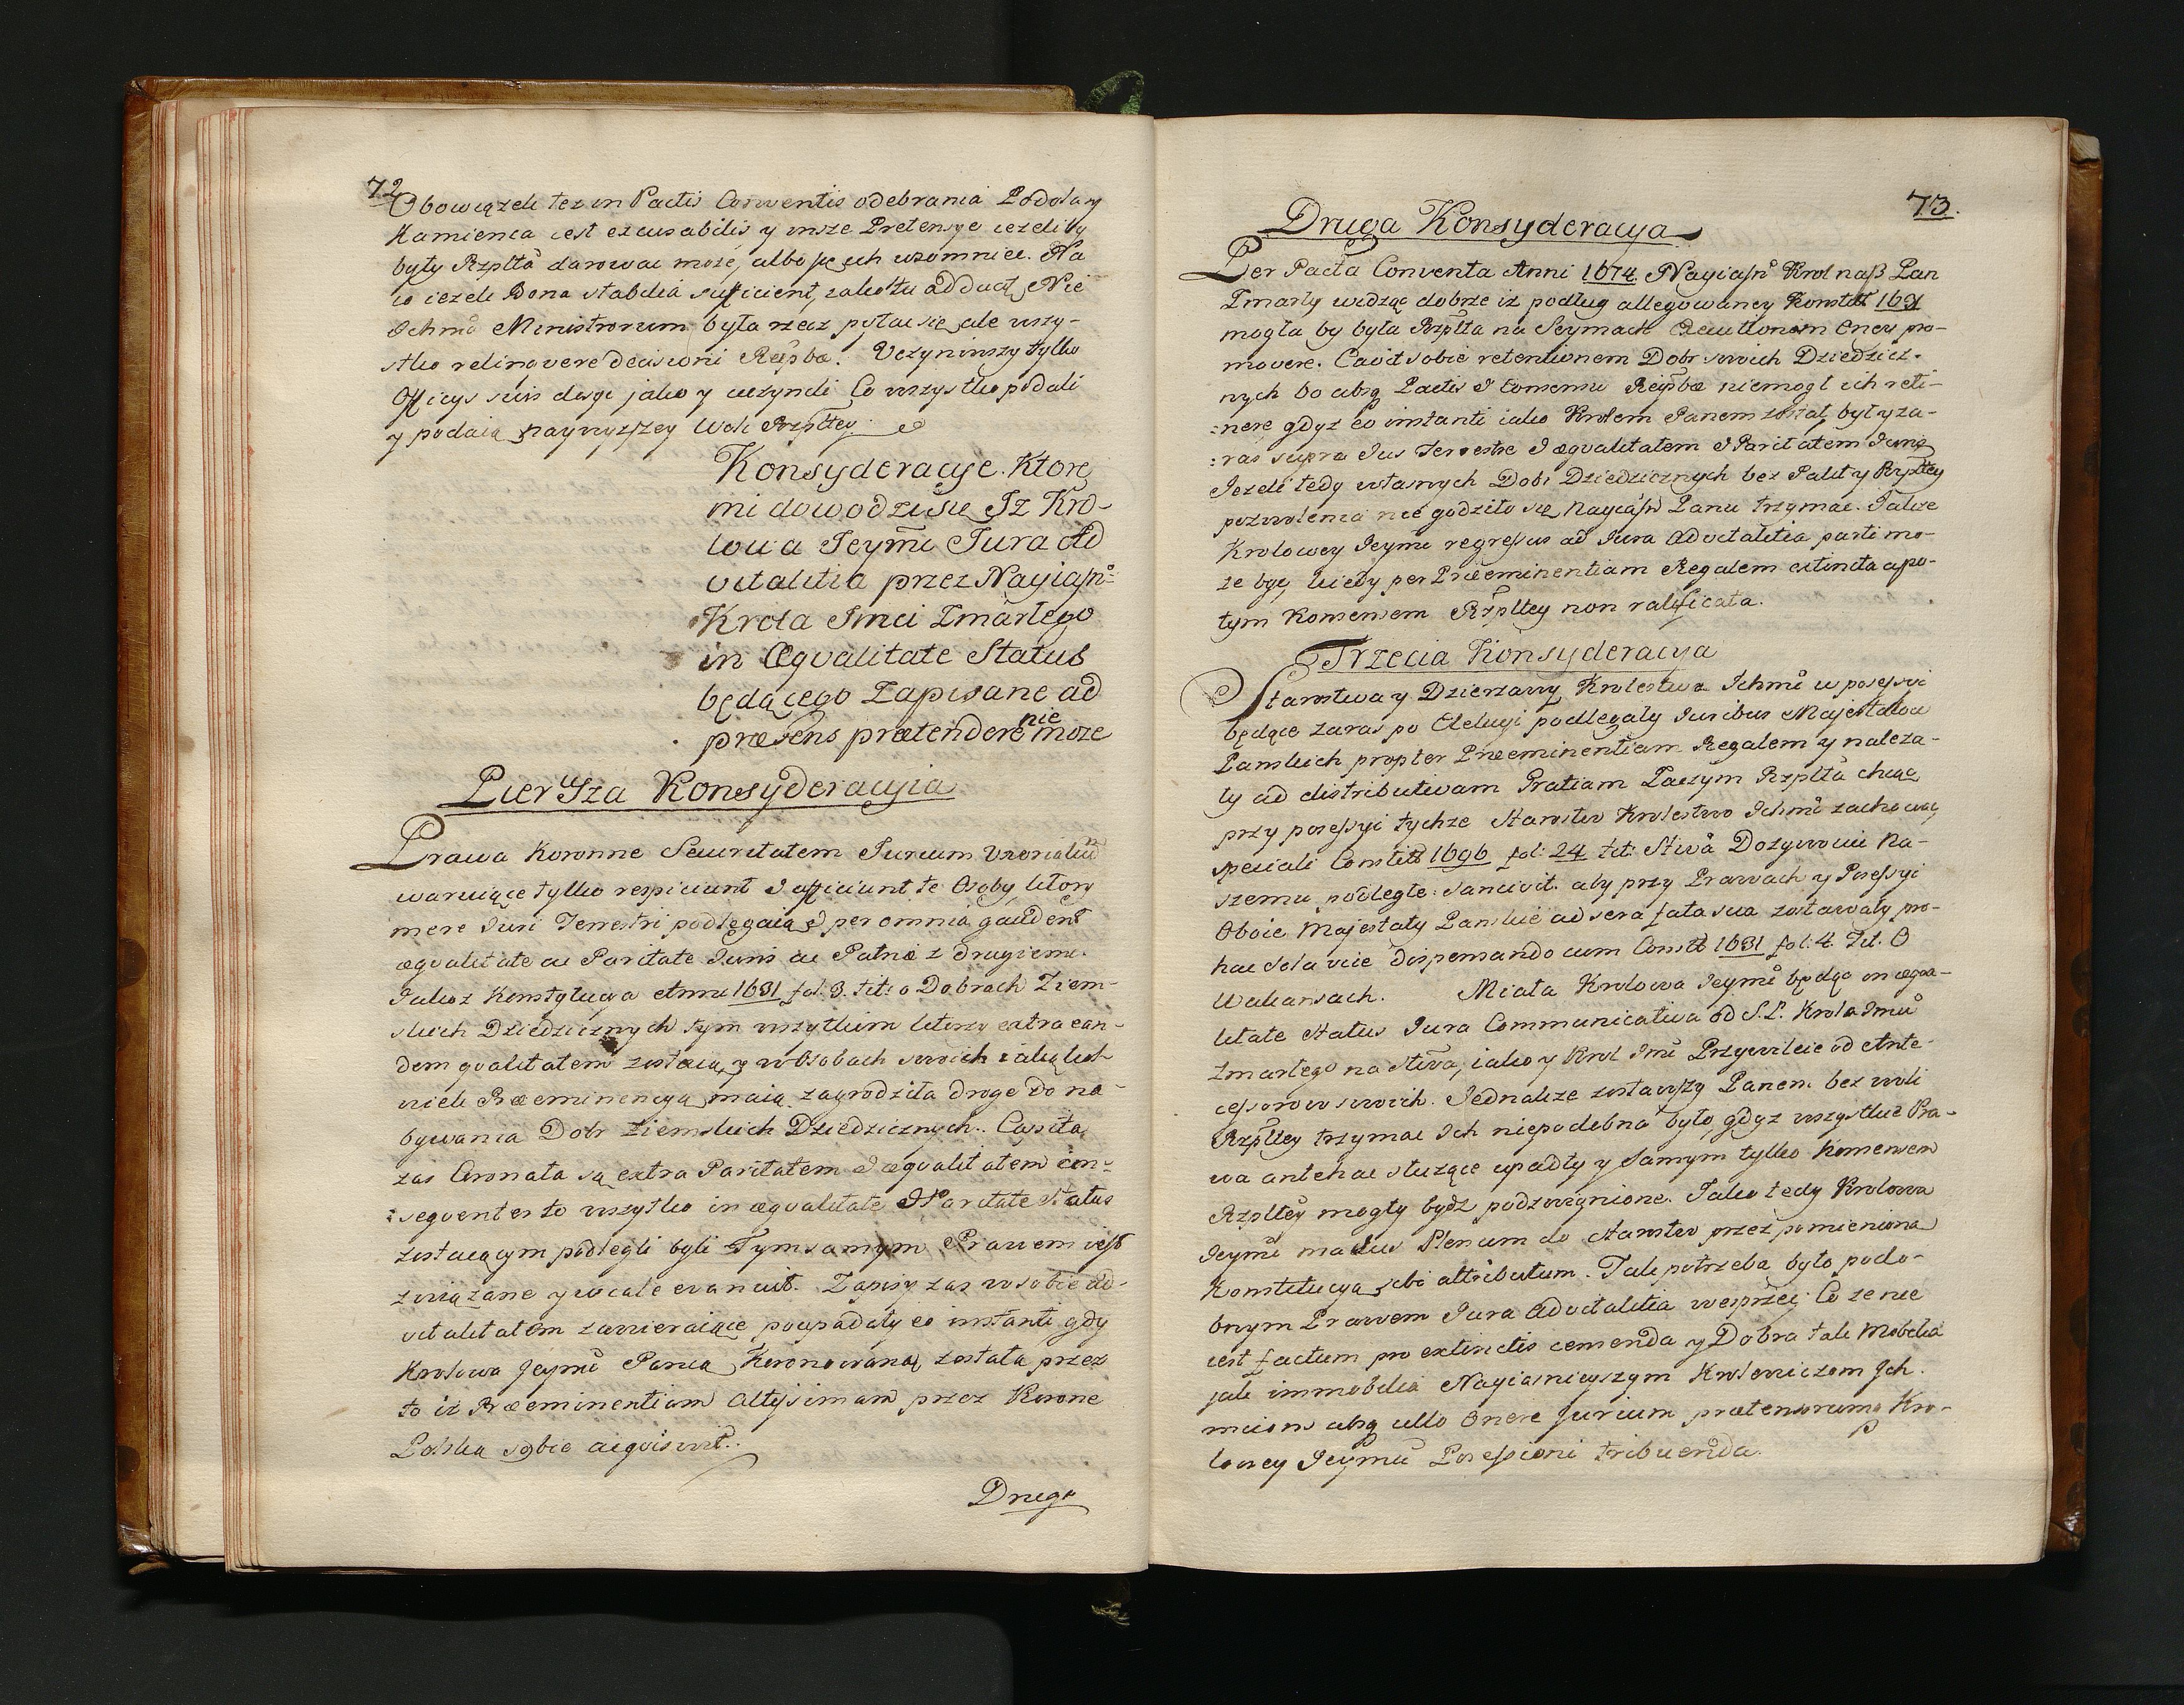 72
Obowiązek tez in Pactis Conventis odebrania Podola y
Kamienca iest excusabilis y insze Pretensye iezeli by
były Rzpltā darowac może, albo się ich uzomnice. Na
to iezeli Bona stabilia suficient, zalostu adduct, Nie
Ichmč Ministrorum była rzecz pytac się, ale wszy-
stko relinqvere decisioni Reipbæ. Uczyniwszy tylko
Officys suis desge jako y uczynili Co wszystko podali
y podaią naywyzszey Woli Rzpltey.
Konsyderacye. Ktore
mi dowodzi się Iz Kro-
lowa Jeymć Jura Ad
vitalitia przez Nayiasń:
Krola Imci Zmarłego
in Æqvalitate Status
będącego Zapisane ad
præsens prætendere nie moze
PierYsza Konsyderacyia
Prawa Koronne Securitatem Jurium Uxorialium
waruiące tylko respiciunt I afficiunt te Osoby, ktory
mere Juri Terrestri podlęgaią I per omnia gaudent
æqvalitate ac Paritate Juris ac Patriæ z drugiemi.
Jakoz Konstytucya Anni 1631 fol. 3. tit: o Dobrach Ziem-
skich Dziedzicznych tym wszytkim ktorzy extra ean-
dem qvalitatem zostaią, y w Osobach swoich iakąkol-
wiek Præeminencyą maią zagrodziła droge do na-
bywania Dobr Ziemskich Dziedzicznych. Capita
zas Coronata są extra Paritatem I æqvalitatem con-
:seqventer to wszytko in æqvalitate I Paritate Status
zostaiącym podlegli byli Tym samym Prawem iest
związane y wcale evanuit. Zapisy zas w sobie ad-
vitalitatem zawieraiące poupadały eo instanti, gdy
Krolowa Jeymć Panią Koronowaną została przez
to iz Præeminentiam Altissimam przez Korone
Polską sobie aqvisivit.
Druga
73.
Druga Konsyderacya
Per Pacta Conventa Anni 1674. Nayiasń Krol naß Pan
Zmarły widząc dobrze iz podług allegowaney Konstit 1631
mogła by była Rzplta na Seymach Executionem Oney pro-
movere. Cavit sobie retentionem Dobr swoich Dziedzicz-
nych bo absq Pactis I Consensu Reipbæ niemogł ich reti-
:nere gdyz Eo instanti iako Krolem Panem został, były za-
:ras supra Jus Terrestre I æqvalitatem I Paritatem Juris
Jezeli tedy własnych Dobr Dziedzicznych bez Pakt y Rzpltey
pozwolenia nie godziło się Nayiasń Panu trzymac. Jakże
Krolowey Jeymć regressus ad Jura Advitalitia parti mo-
ze byc, kiedy per Præeminentiam Regalem extincta a po-
tym Konsensem Rzpltey non ratificata.
Trzecia Konsyderacya
Starostwa y Dzierzawy Krolestwa Ichmć w posessyi
będące zaras po Elekcyi podlegały Juribus Majestatow
Panskich propter Præeminentiam Regalem y naleza-
ły ad distributivam Gratiam Zaczym Rzpltā chcąc
przy posessyi tychze Starostw Krolestwo Ichmć zachowac
speciali Constit 1696 fol: 24 tit: Stwā Dozywociu Na-
szemu podległe: sancivit. aby przy Prawach y Posessyi
Oboie Majestaty Panskie ad sera fata sua zostawały pro-
hac sola vice dispensando cum Constit 1631 fol: 4. Tit. O
Wakansach. Miała Krolowa Jeymć będąc in æqva-
litate Status Jura Communicativa od S.P. Krola Imci
Zmarłego na Stwa, iako y Krol Imć Przywileie od Ante-
cessorow swoich. Jednakze zostawszy Panem bez woli
Rzpltey trzymac Ich niepodobna było, gdyz wszystkie Pra-
wa antehac słuzące upadły y samym tylko Konsensem
Rzpltey mogły bydz podzwignione. Jako tedy Krolowa
Jeymć ma Ius Plenum do Starostw przez pomieniona
Konstitucyą sibi attributum. Tak potrzeba było podo-
bnym Prawem Jura Advitalitia wesprzec: Co ze nie
iest factum pro extinctis censenda y Dobra tak Mobilia
jak immobilia Nayiasnieyszym Krolewiczom Ich.
mciom absq ullo Onere Jurium prætensorum Kro-
lowey Jeymć Possessioni tribuenda.